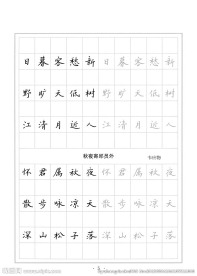 日暮客愁新 日暮客愁新
野旷天低树 野旷天低树
江清月近人 江清月近人
秋夜寄邱员外 韦应物
怀君属秋夜 怀君属秋夜
散步咏凉天 散步咏凉天
深山松子落 深山松子落